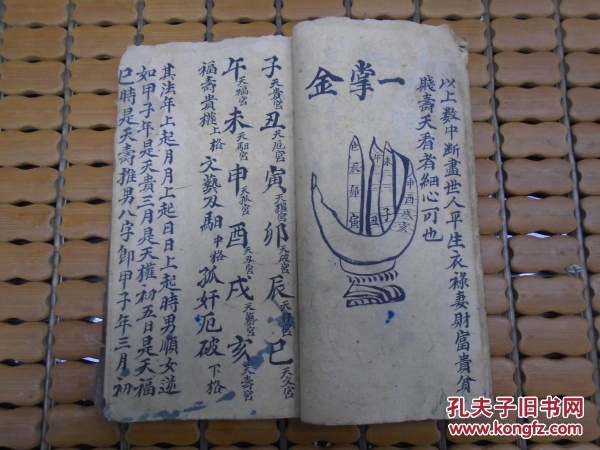 以上数中断盡世人平生衣祿妻財富貴貧
賤壽夭看者細心可也
一掌金
申酉戌亥
未二三子
午一丑
巳辰卯寅
子天貴宮丑天厄宮寅天權宮卯天破宮辰天奸宮巳天文宮
午天福宮未天馹宮申天孤宮酉天刃宮戌天藝宮亥天壽宮
福壽貴權上格文藝及馹中格孤奸厄破下格
其法年上起月月上起日日上起時男順女逆
如甲子年是天貴三月是天權初五日是天福
巳時是天壽推男八字即甲子年三月初
孔夫子旧书网
KONGFZ.COM